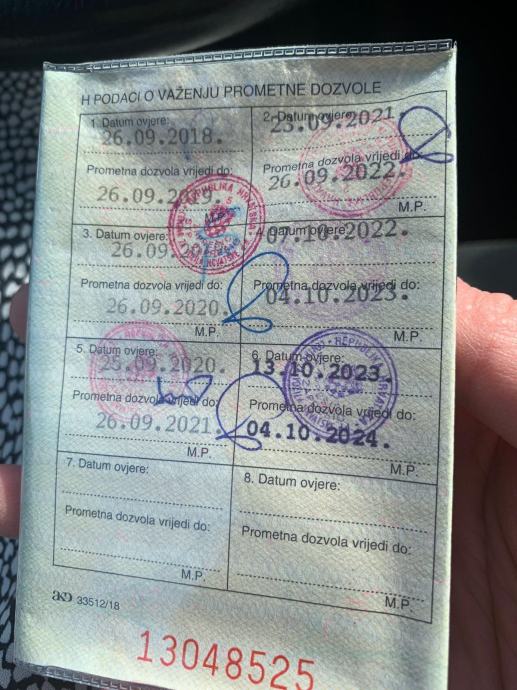 H PODACI O VAŽENJU PROMETNE DOZVOLE
1. Datum ovjere:
26.09.2018.
Prometna dozvola vrijedi do:
26.09.2019.
2. Datum ovjere:
23.09.2021.
Prometna dozvola vrijedi do:
26.09.2022.
M.P.
3. Datum ovjere:
26.09.
Prometna dozvola vrijedi do:
26.09.2020.
M.P.
4. Datum ovjere:
07.10.2022.
Prometna dozvola vrijedi do:
04.10.2023.
5. Datum ovjere:
.09.2020.
Prometna dozvola vrijedi do:
26.09.2021.
M.P.
6. Datum ovjere:
13.10.2023.
Prometna dozvola vrijedi do:
04.10.2024.
M.P.
7. Datum ovjere:
Prometna dozvola vrijedi do:
M.P.
8. Datum ovjere:
Prometna dozvola vrijedi do:
M.P.
REPUBLIKA HRVATSKA
AKD 33512/18
13048525